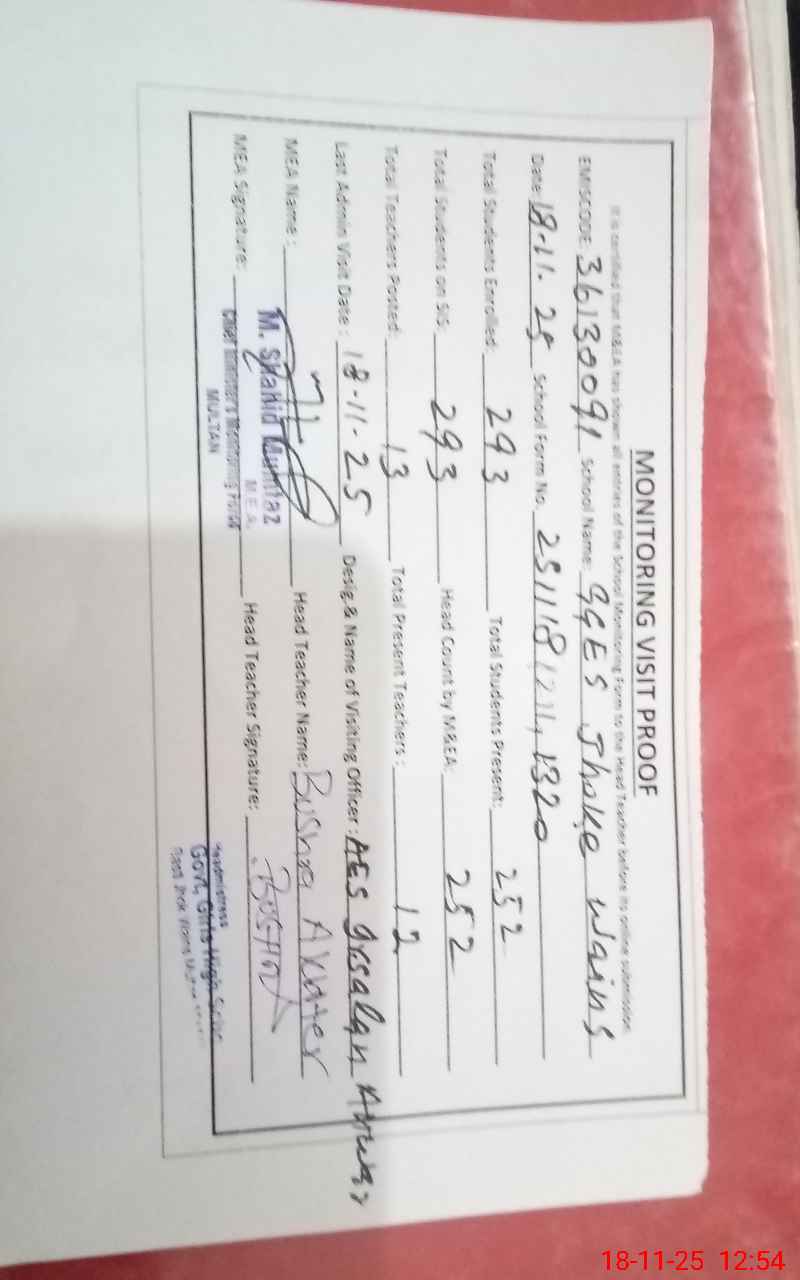 MONITORING VISIT PROOF
It is certified that M&EA has shown all entries of the School Monitoring Form to the Head Teacher before its online submission
EMISCODE: 36130091 School Name: GGES Jhoke Wains
Date: 18-11-25 School Form No.
Total Students Enrolled: 293 Total Students Present: 252
Total Students on SIS: 293 Head Count by M&EA: 252
Total Teachers Posted: 13 Total Present Teachers: 12
Last Admin Visit Date: 18-11-25 Desig.& Name of Visiting Officer: AEO
MEA Name: Head Teacher Name: Bushra Akhter
M. Shahid Mumtaz
M.E.A.
MEA Signature: Head Teacher Signature: Bushra
Chief Minister's Monitoring Force
MULTAN
Headmistress
Govt. Girls High School
18-11-25 12:54